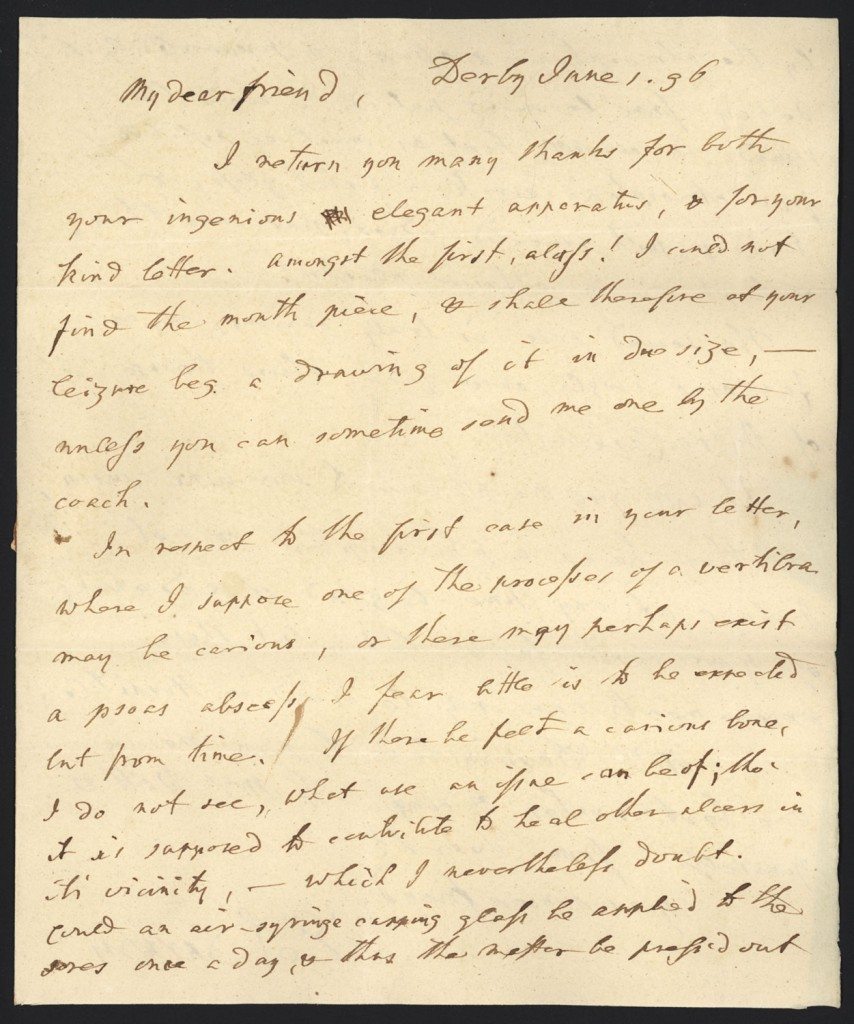 My dear friend, Derby June 1. 96
I return you many thanks for both
your ingenious elegant apparatus, & for your
kind letter. amongst the first, alass! I could not
find the mouth pièce, & shall therefore at your
leizure beg a drawing of it in due size, —
unless you can sometime send me one by the
coach.
In respect to the first case in your letter,
where I suppose one of the processes of a vertibra
may be carious, or there may perhaps exist
a psoas abscess, I fear little is to be expected
but from time. If there be felt a carious bone,
I do not see, what use an issue can be of; tho'
it is supposed to contribute to heal other ulcers in
it's vicinity, — which I nevertheless doubt.
could an air-syringe cupping glass be applied to the
sores once a day, & thus the matter be press'd out